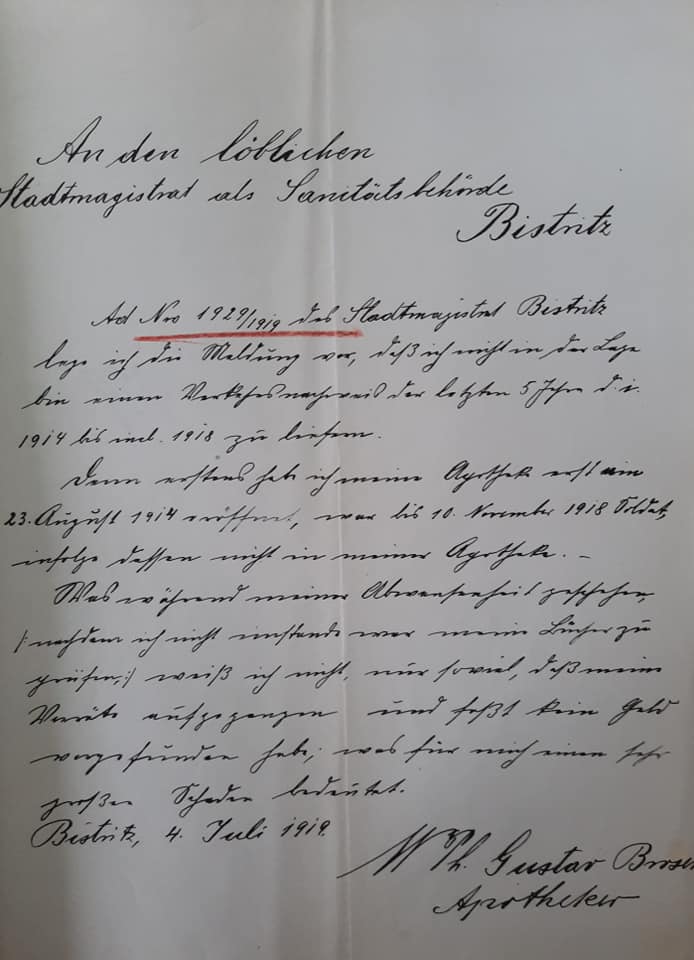 An den löblichen
Stadtmagistrat als Sanitätsbehörde
Bistritz
Ad Nro 1929/1919 des Stadtmagistrat Bistritz
lege ich die Meldung vor, daß ich nicht in der Lage
bin einen Verkehrsnachweis der letzten 5 Jahre d. i.
1914 bis incl. 1918 zu liefern.
Denn erstens hab ich meine Apotheke erst am
23. August 1914 eröffnet, war bis 10. November 1918 Soldat,
infolge dessen nicht in meiner Apotheke. –
Was während meiner Abwesenheit geschehen,
/: nachdem ich nicht imstande war meine Bücher zu
prüfen, :/ weiß ich nicht, nur soviel, daß meine
Vorräte aufgegangen und fast kein Geld
vorgefunden habe; was für mich einen sehr
großen Schaden bedeutet.
Bistritz, 4. Juli 1919.
Ph. Gustav
Apotheker